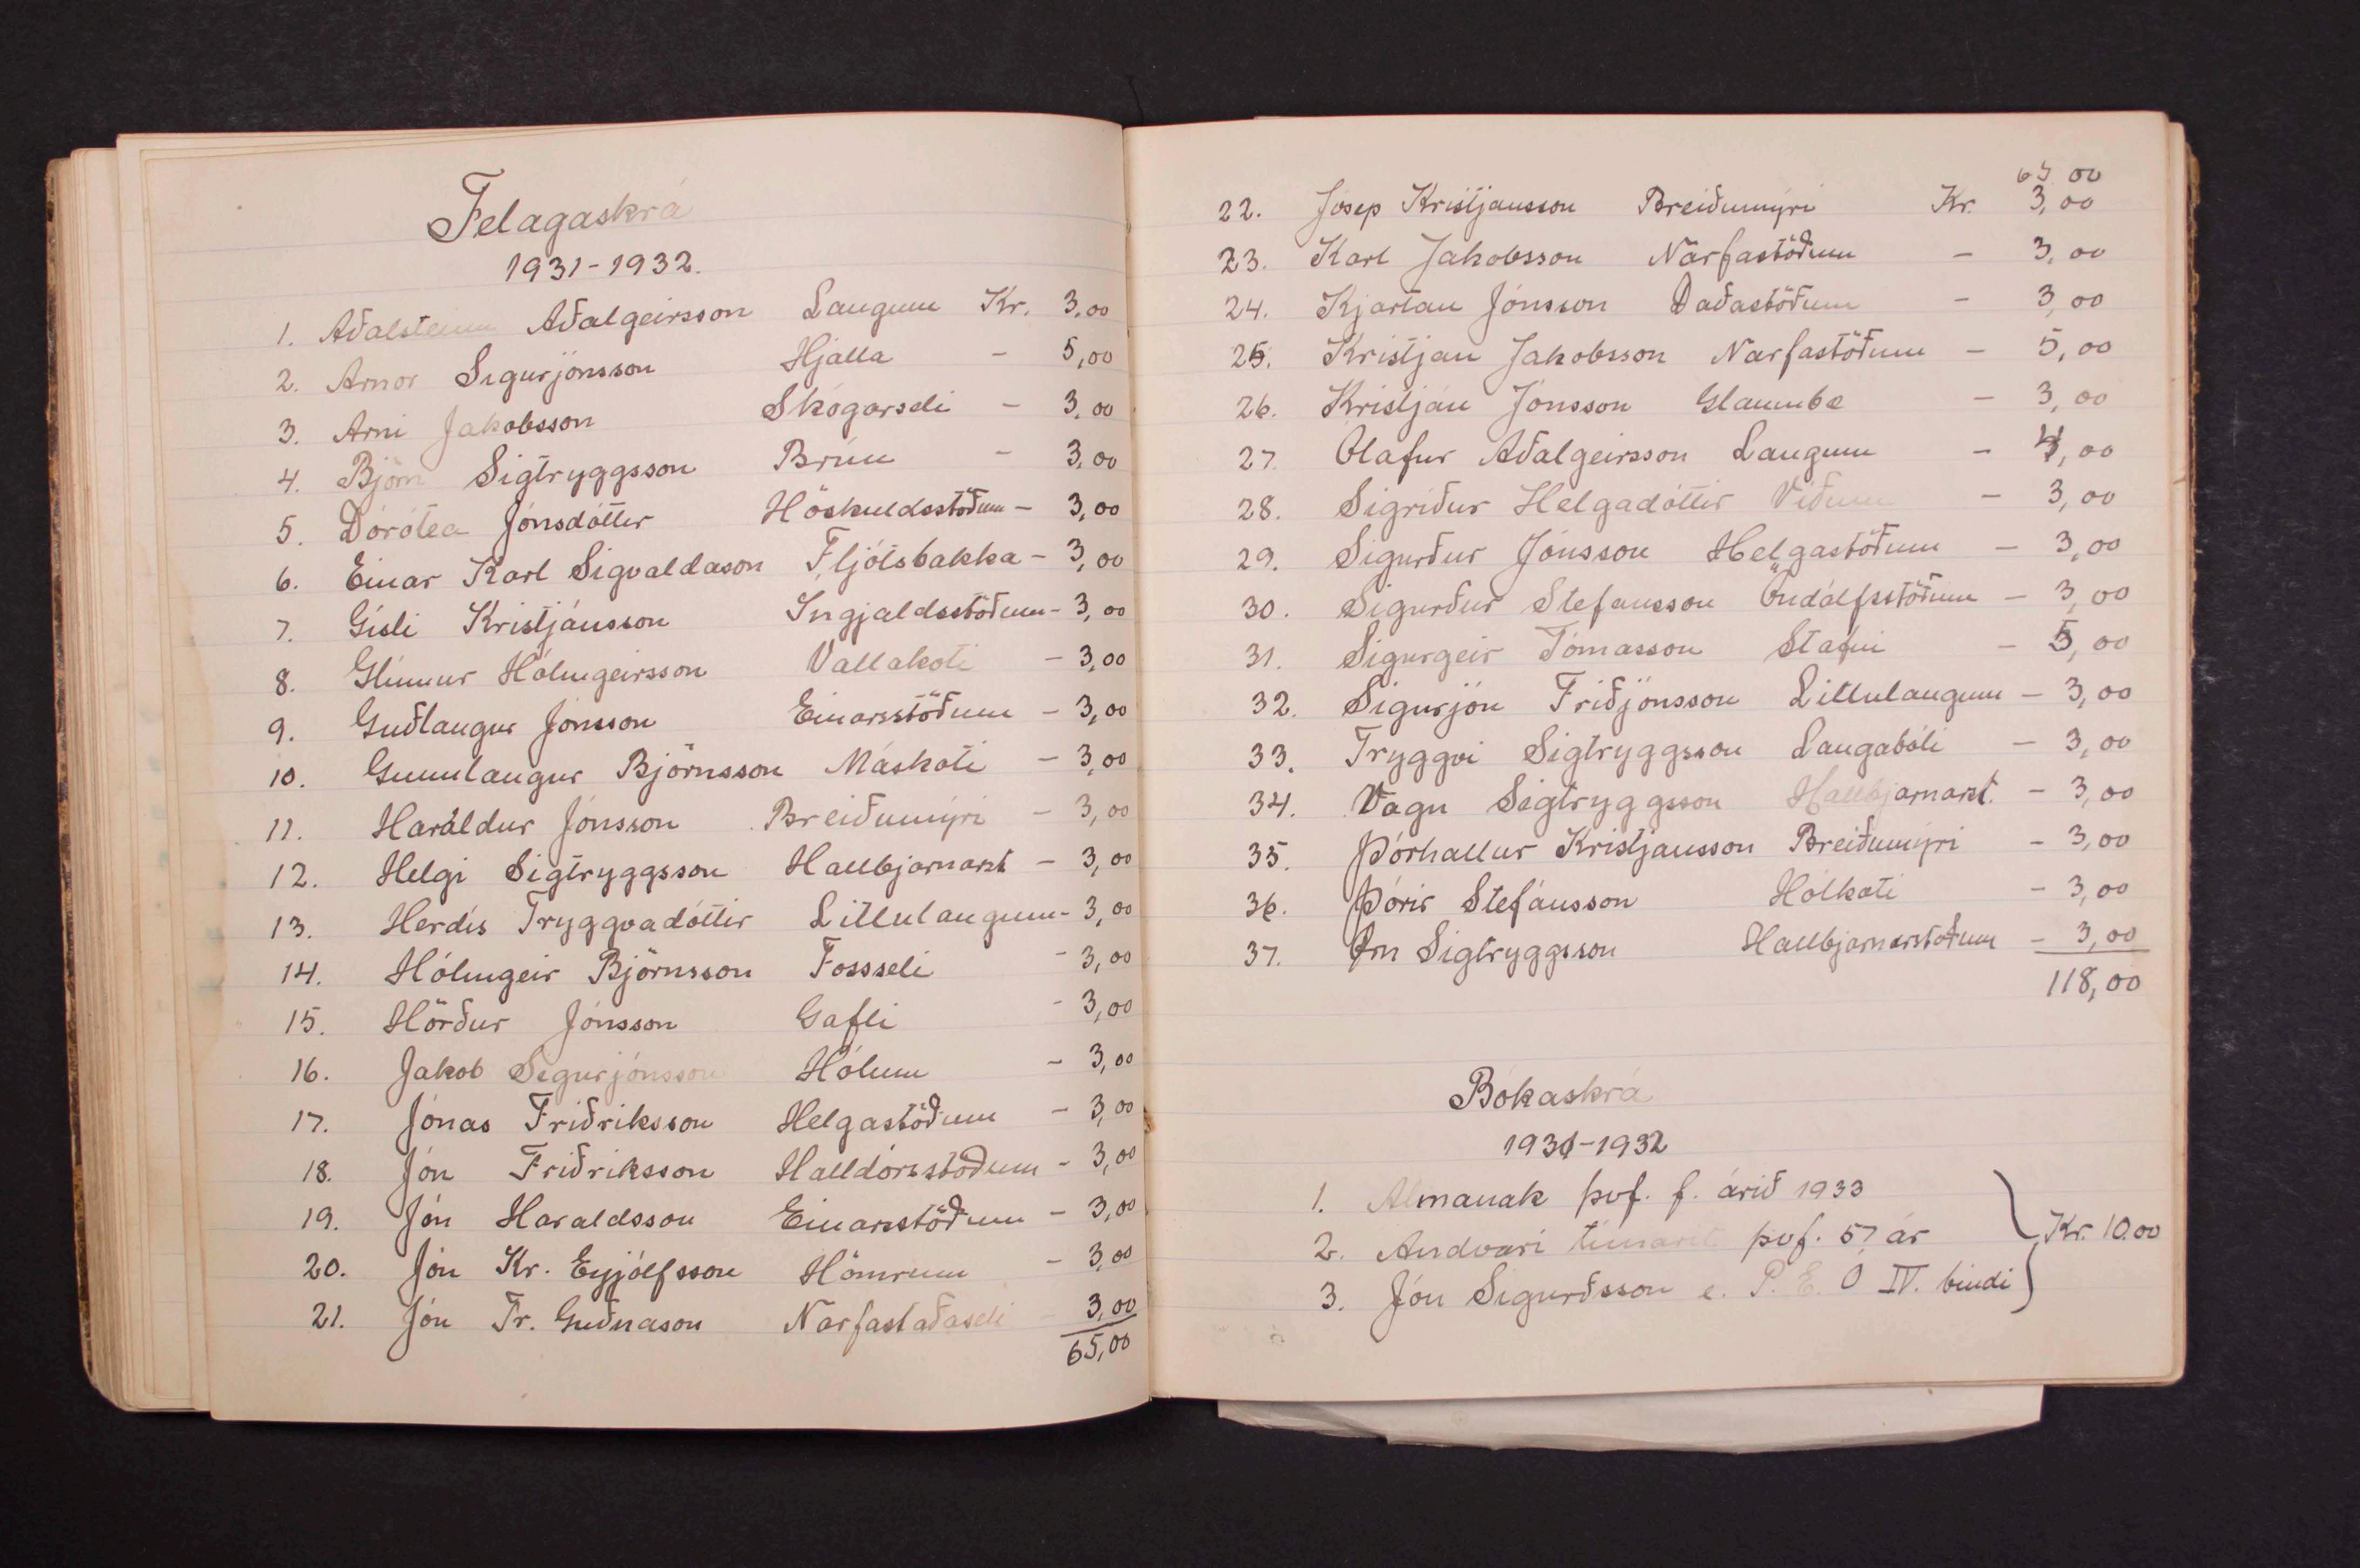 Felagaskrá
1931-1932.
1. Aðalsteinn Aðalgeirsson Laugum Kr. 3,00
2. Arnor Sigurjónsson Hjalla - 5,00
3. Arni Jakobsson Skógarseli - 3,00
4. Björn Sigtryggsson Brún - 3,00
5. Dórótea Jónsdóttir Höskuldsstöðum - 3,00
6. Einar Karl Sigvaldason Fljótsbakka - 3,00
7. Gísli Kristjánsson Ingjaldsstöðum - 3,00
8. Glúmur Hólmgeirsson Vallakoti - 3,00
9. Guðlaugur Jónsson Einarsstöðum - 3,00
10. Gunnlaugur Björnsson Máskoti - 3,00
11. Haraldur Jónsson Breiðumýri - 3,00
12. Helgi Sigtryggsson Hallbjarnarst - 3,00
13. Herdís Tryggvadóttir Litlulaugum - 3,00
14. Hólmgeir Björnsson Fossseli - 3,00
15. Hörður Jónsson Gafli - 3,00
16. Jakob Sigurjónsson Hólum - 3,00
17. Jónas Friðriksson Helgastöðum - 3,00
18. Jón Friðriksson Halldórsstöðum - 3,00
19. Jón Haraldsson Einarsstöðum - 3,00
20. Jón Kr. Eyjólfsson Hömrum - 3,00
21. Jón Fr. Guðnason Narfastaðaseli - 3,00
65,00
65 00
22. Jósep Kristjansson Breiðumýri Kr. 3,00
23. Karl Jakobsson Narfastöðum - 3,00
24. Kjartan Jónsson Daðastöðum - 3,00
25. Kristjan Jakobsson Narfastöðum - 5,00
26. Kristján Jónsson Glaumbæ - 3,00
27. Olafur Aðalgeirsson Laugum - 4,00
28. Sigriður Helgadóttir Viðum - 3,00
29. Sigurður Jónsson Helgastöðum - 3,00
30. Sigurður Stefansson Öndólfsstöðum - 3,00
31. Sigurgeir Tómasson Stafni - 5,00
32. Sigurjón Friðjónsson Litlulaugum - 3,00
33. Tryggvi Sigtryggsson Laugabóli - 3,00
34. Vagn Sigtryggsson Hallbjarnarst. - 3,00
35. Þórhallur Kristjansson Breiðumýri - 3,00
36. Þórir Stefánsson Hólkoti - 3,00
37. Örn Sigtryggsson Hallbjarnarstöðum - 3,00
118,00
Bókaskrá
1931-1932
1. Almanak þvf. f. árið 1933
2. Andvari tímarit þvf. 57 ár Kr. 10.00
3. Jón Sigurðsson e. P. E. Ó IV. bindi